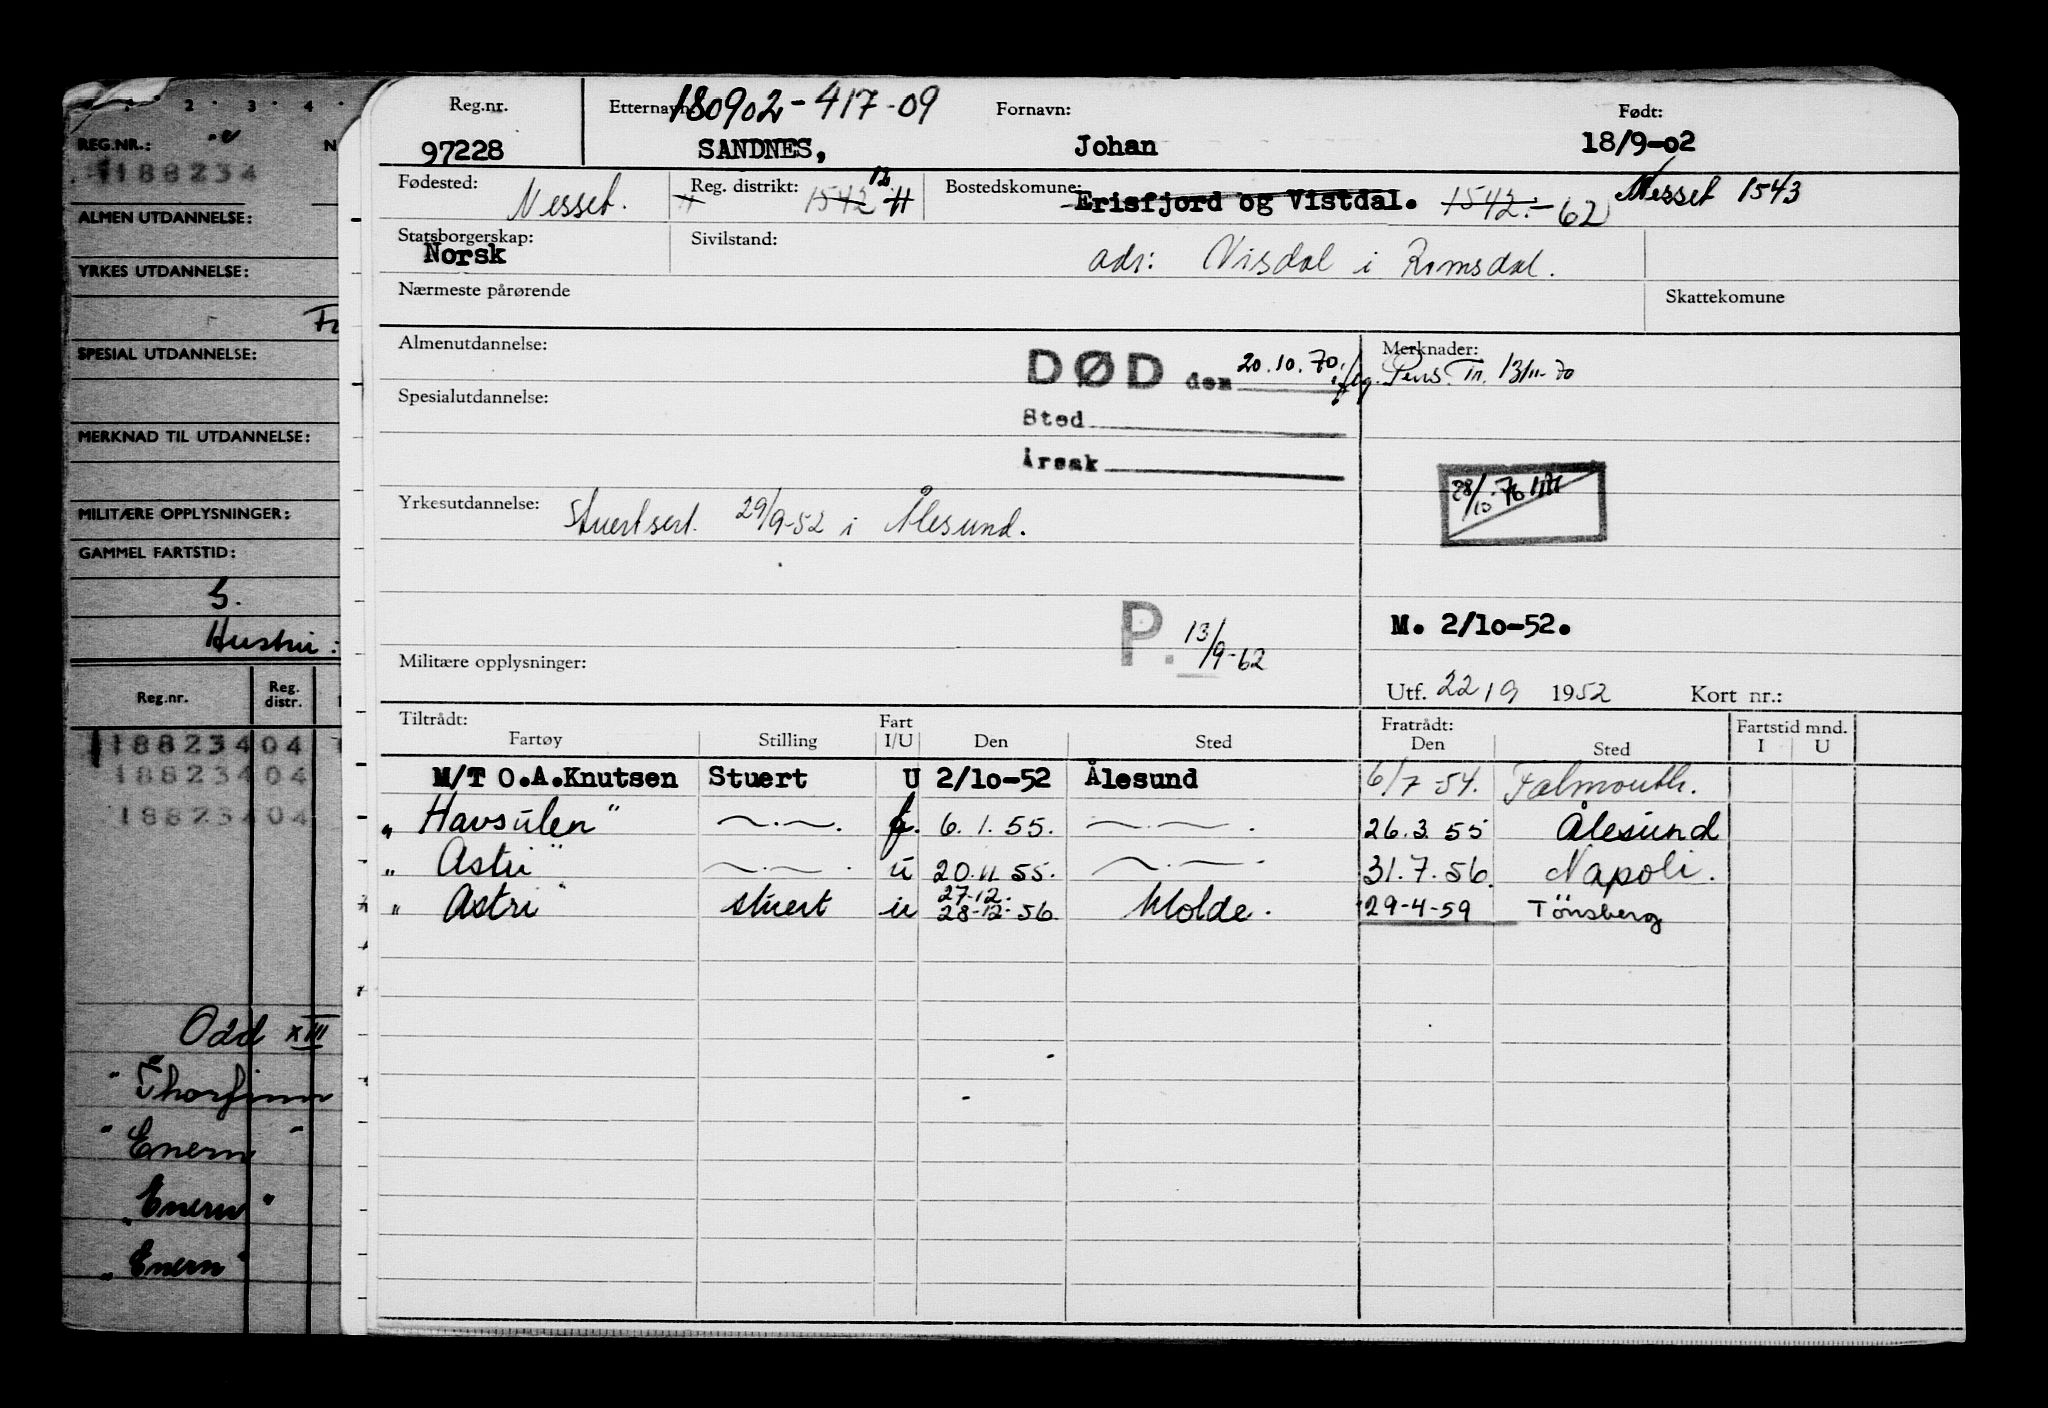 1 · 2 · 3 · 4 ·
REG.NR.:
188234
ALMEN UTDANNELSE:
YRKES UTDANNELSE:
SPESIAL UTDANNELSE:
MERKNAD TIL UTDANNELSE:
MILITÆRE OPPLYSNINGER:
GAMMEL FARTSTID:
S.
Hustru:
Reg.nr. Reg. distr.
188234 04
188234 04
188234 04
Odd XIII
" Thorfinn
" Enern "
" Enern "
" Enern "
Reg.nr. Etternavn: 180902-417-09 Fornavn: Født:
97228 SANDNES, Johan 18/9-02
Fødested: Nesset. Reg. distrikt: 1542 12 Bostedskomune: Erisfjord og Vistdal. 1542.- 62 Nesset 1543
Statsborgerskap: Norsk Sivilstand: adr: Visdal i Romsdal.
Nærmeste pårørende Skattekomune
Almenutdannelse: DØD den 20.10.70. Merknader: iflg. Pens. Tr. 13/11-70
Spesialutdannelse: Sted
Årsak
28/10-70
Yrkesutdannelse: Stuertsert. 29/9-52 i Ålesund.
P. 13/9-62 M. 2/10-52.
Militære opplysninger: Utf. 22/9 1952 Kort nr.:
Tiltrådt: Fartøy Stilling Fart I/U Den Sted Fratrådt: Den Sted Fartstid mnd. I U
M/T O.A.Knutsen Stuert U 2/10-52 Ålesund 6/7-54. Falmouth.
" Havsulen" —.—. 6.1.55. —.—. 26.3.55 Ålesund
" Astri" —.—. u 20.11.55. —.— 31.7.56. Napoli.
" Astri" stuert u 27-12. 28-12-56 Molde. 29-4-59 Tönsberg